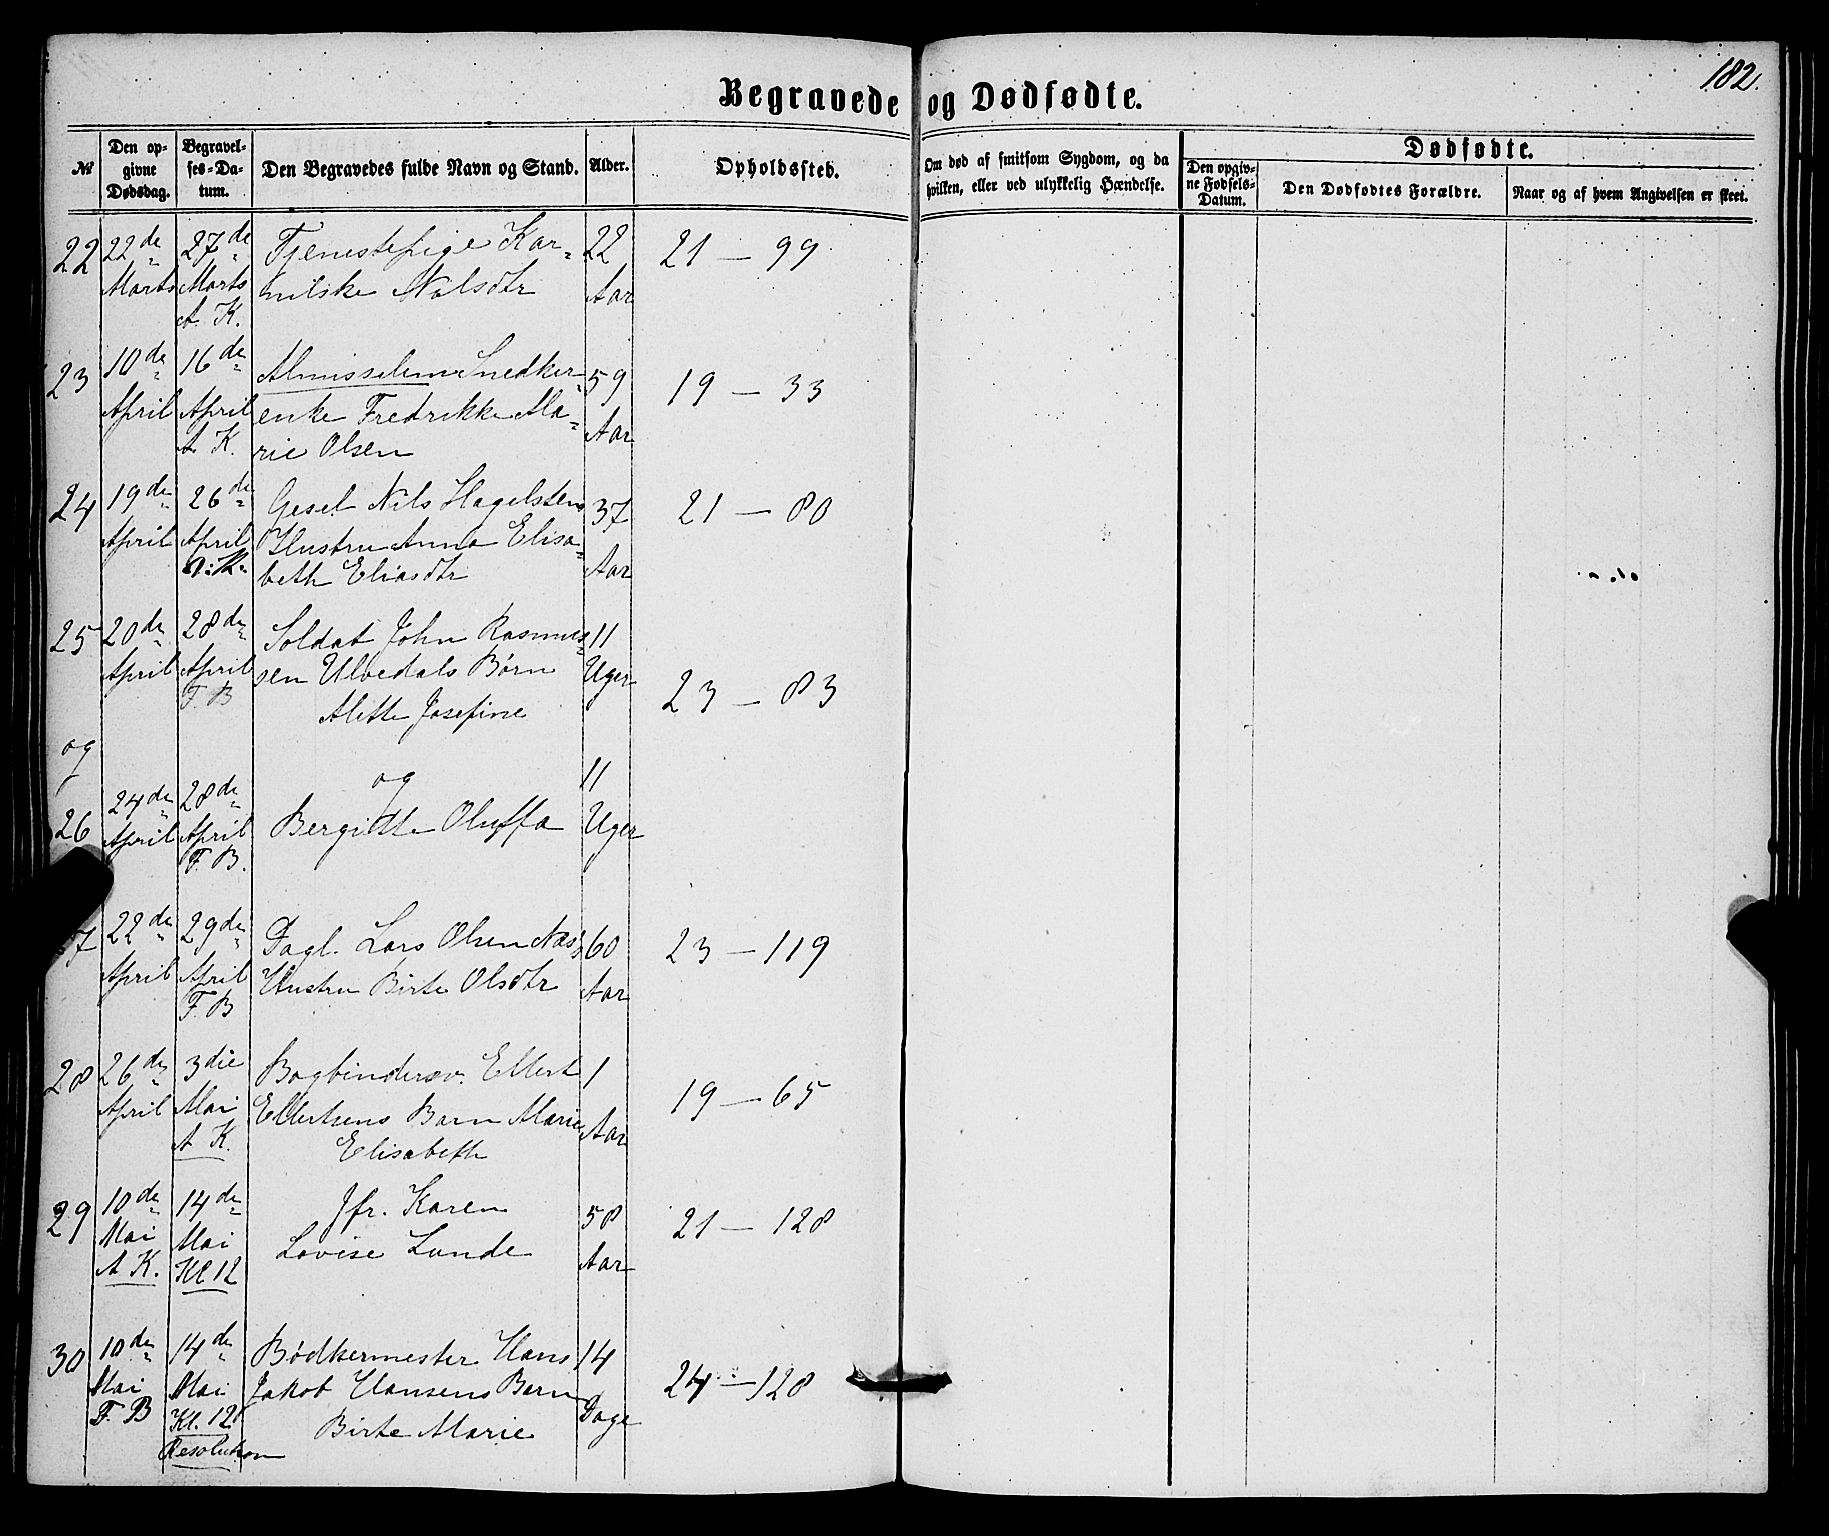 182.
Begravede og Dødfødte.
No
Den opgivne Dødsdag.
Begravelses-Datum.
Den Begravedes fulde Navn og Stand.
Alder.
Opholdssted.
Om død af smitsom Sygdom, og da hvilken, eller ved ulykkelig Hændelse.
Dødfødte.
Den opgivne Fødsels-Datum.
Den Dødfødtes Forældre.
Naar og af hvem Angivelsen er skeet.
22 22de 27de Tjenestepige Kar- 22 21 — 99
Marts Marts nilske Nilsdtr Aar
A. K.
23 10de 16de Almisselem Snedker- 59 19 — 33
April April enke Fredrikke Ma- Aar
A. K. rie Olsen
24 19de 26de Gesel Nils Hagelsten 37 21 — 80
April April Hustru Anna Elisa- Aar
A: K: beth Eliasdtr
25 20de 28de Soldat John Rasmus- 11
April April sen Ulvedals Børn Uger 23 — 83
F. B Alette Josefine
og
og 11
26 24de 28de Bergitte Oluffa Uger
April April
F. B.
7 22de 29de Dagl. Lars Olsen Næs's 60 23 — 119
April April Hustru Birte Olsdtr Aar
F. B
28 26de 3die Bogbindersv. Ellert 1 19 — 65
April Mai Ellertsens Barn Marie Aar
A K. Elisabeth
29 10de 14de Jfr. Karen 58 21 — 128
Mai Mai Lovise Lunde Aar
A K. Kl 12
30 10de 14de Bødkermester Hans 14 24 — 128
Mai Mai Jakob Hansens Barn Dage
F. B Kl. 12 Birte Marie
Resolution